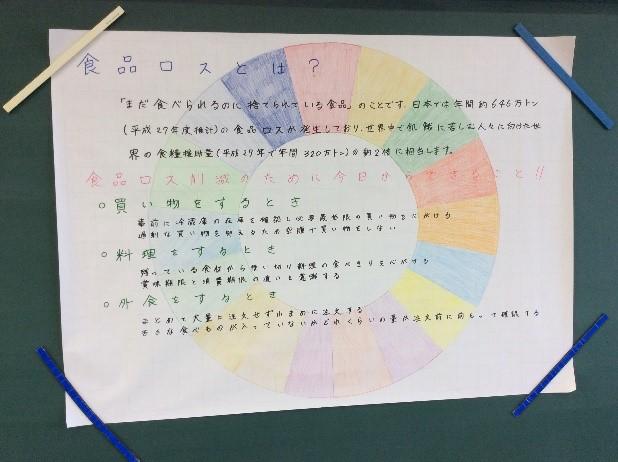 食品ロスとは？
「まだ食べられるのに捨てられている食品」のことです。日本では年間約646万トン
(平成27年度推計)の食品ロスが発生しており、世界中で飢餓に苦しむ人々に向けた世
界の食糧援助量(平成27年で年間320万トン)の約2倍に相当します。
食品ロス削減のために今日からできること!!
○買い物をするとき
事前に冷蔵庫の在庫を確認し必要最低限の買い物を心がける
過剰な買い物を抑えるため空腹で買い物をしない
○料理をするとき
残っている食材から使い切り料理の食べきりを心がける
賞味期限と消費期限の違いを意識する
○外食をするとき
まとめて大量に注文せず小まめに注文する
苦手な食べものが入っていないかどれくらいの量か注文前に前もって確認する